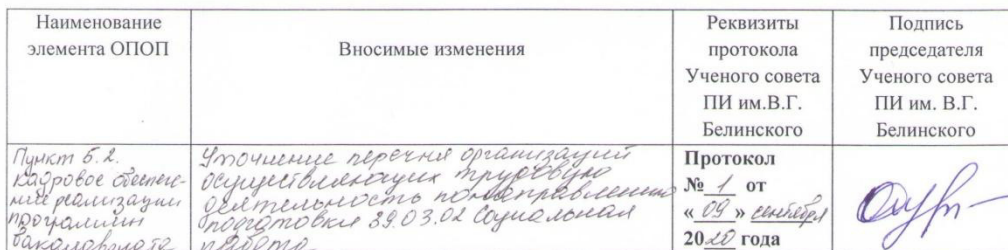 Наименование
элемента ОПОП
Вносимые изменения
Реквизиты
протокола
Ученого совета
ПИ им.В.Г.
Белинского
Подпись
председателя
Ученого совета
ПИ им. В.Г.
Белинского
Пункт 5.2.
Кадровое обеспече-
ние реализации
программы
бакалавриата
Уточнение перечня организаций
осуществляющих трудовую
деятельность по направлению
подготовки 39.03.02 Социальная
работа.
Протокол
№ 1 от
« 09 » сентября
2020 года